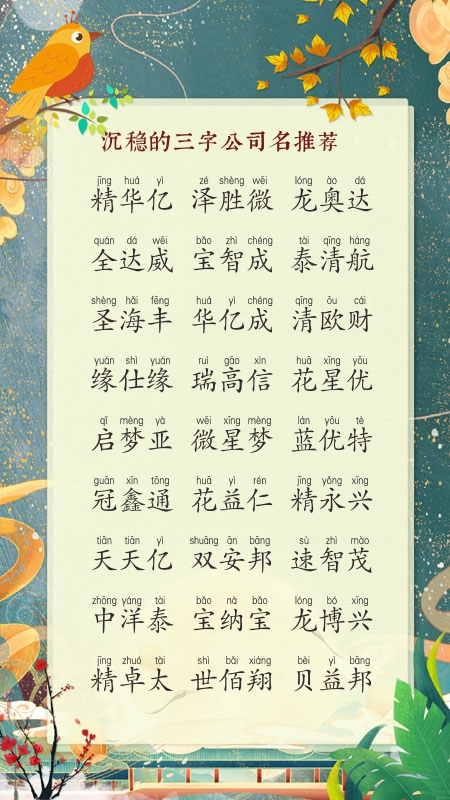 沉稳的三字公司名推荐
jīng huá yì zé shèng wēi lóng ào dá
精华亿 泽胜微 龙奥达
quán dá wēi bǎo zhì chéng tài qīng háng
全达威 宝智成 泰清航
shèng hǎi fēng huá yì chéng qīng ōu cái
圣海丰 华亿成 清欧财
yuán shì yuán ruì gāo xìn huā xīng yōu
缘仕缘 瑞高信 花星优
qǐ mèng yà wēi xīng mèng lán yōu tè
启梦亚 微星梦 蓝优特
guān xīn tōng huā yì rén jīng yǒng xīng
冠鑫通 花益仁 精永兴
tiān tiān yì shuāng ān bāng sù zhì mào
天天亿 双安邦 速智茂
zhōng yáng tài bǎo nà bǎo lóng bó xīng
中洋泰 宝纳宝 龙博兴
jīng zhuó tài shì bǎi xiáng bèi yì bāng
精卓太 世佰翔 贝益邦